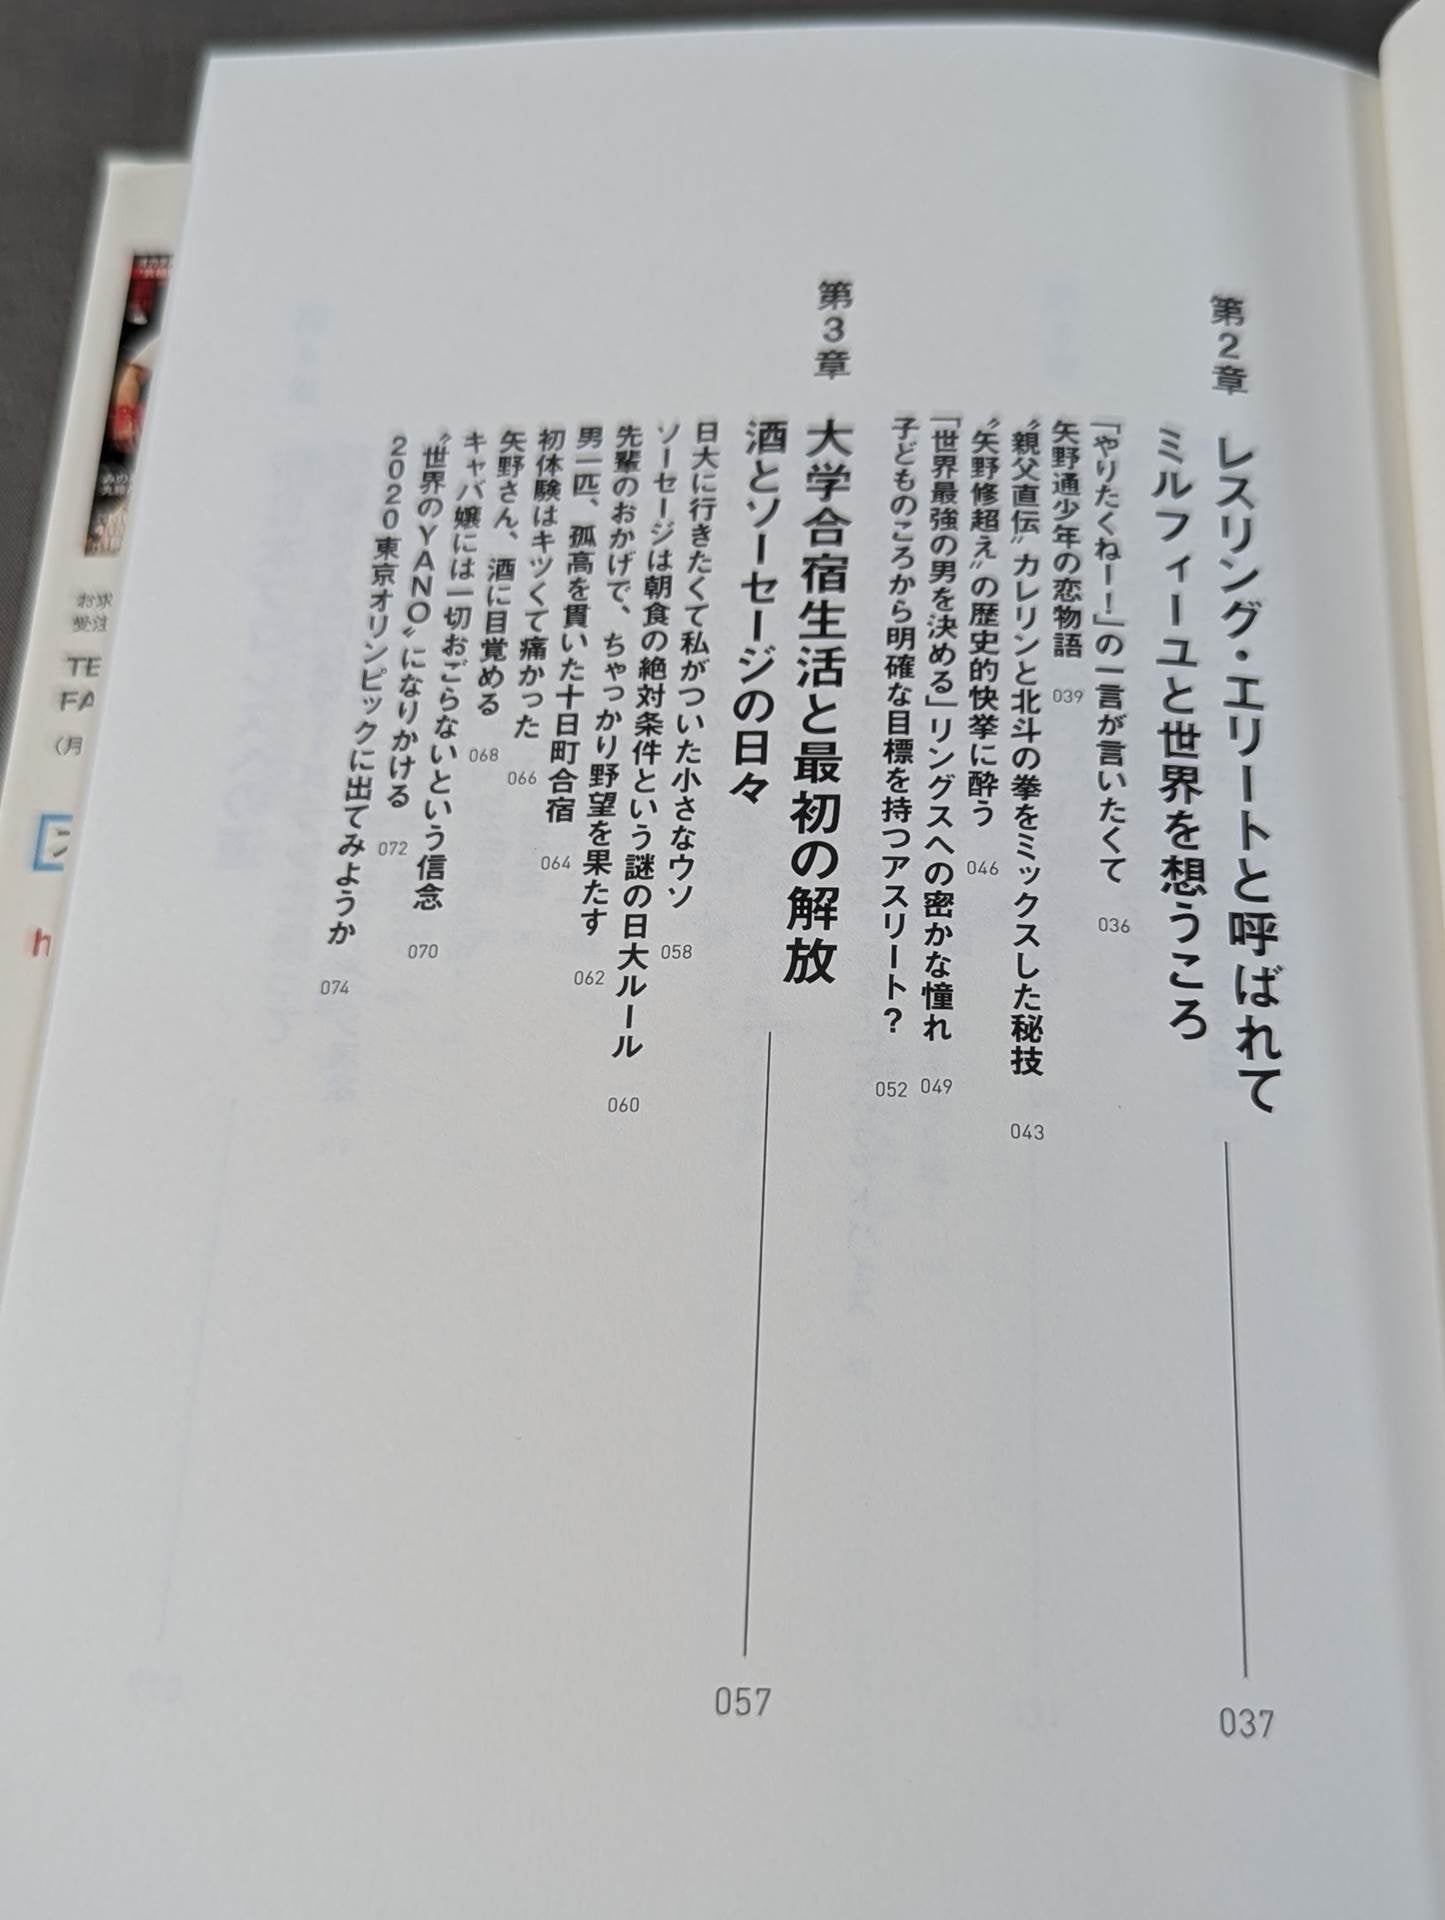 第2章
レスリング・エリートと呼ばれて
ミルフィーユと世界を想うころ
037
「やりたくねー！」の一言が言いたくて 036
矢野通少年の恋物語 039
〝親父直伝〟カレリンと北斗の拳をミックスした秘技 043
〝矢野修超え〟の歴史的快挙に酔う 046
「世界最強の男を決める」リングスへの密かな憧れ 049
子どものころから明確な目標を持つアスリート？ 052
第3章
大学合宿生活と最初の解放
酒とソーセージの日々
057
日大に行きたくて私がついた小さなウソ 058
ソーセージは朝食の絶対条件という謎の日大ルール 060
先輩のおかげで、ちゃっかり野望を果たす 062
男一匹、孤高を貫いた十日町合宿 064
初体験はキツくて痛かった 066
矢野さん、酒に目覚める 068
キャバ嬢には一切おごらないという信念 070
〝世界のYANO〟になりかける 072
2020東京オリンピックに出てみようか 074
お求
受注
TE
FA
(月
h